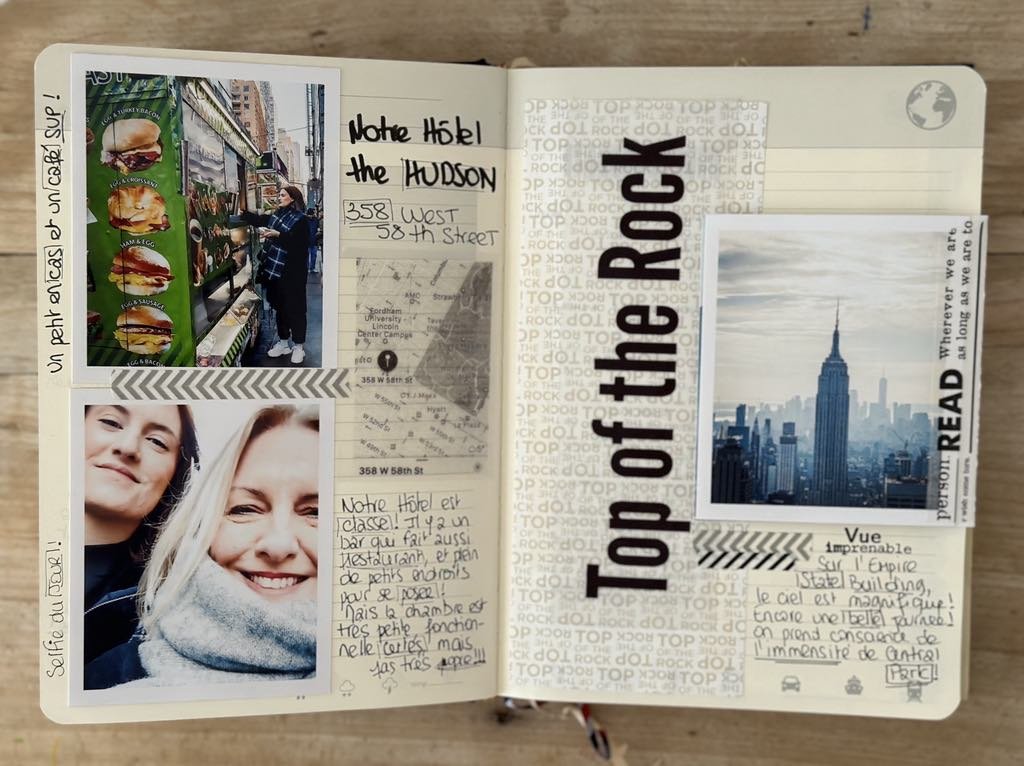 Un petit encas et un café SVP !
EGG & TURKEY BACON
EGG & CROISSANT
HAM & EGG
EGG & SAUSAGE
EGG & BACON
Selfie du JOUR !
Notre Hôtel
the HUDSON
358 WEST
58th STREET
AMC
Fordham
University
Lincoln
Center Campus
358 W 58th St
Hyatt
W 55th St
W 52nd St
53rd St
358 W 58th St
Notre Hôtel est
classe ! Il y a un
bar qui fait aussi
restaurant, et plein
de petits endroits
pour se poser !
Mais la chambre est
très petite, fonction-
nelle certes, mais
pas très
Top of the Rock
TOP OF THE ROCK
person READ Wherever we are
as long as we are to
Vue
imprenable
sur l'Empire
State Building,
le ciel est magnifique !
Encore une belle journée !
On prend conscience de
l'immensité de Central
Park !